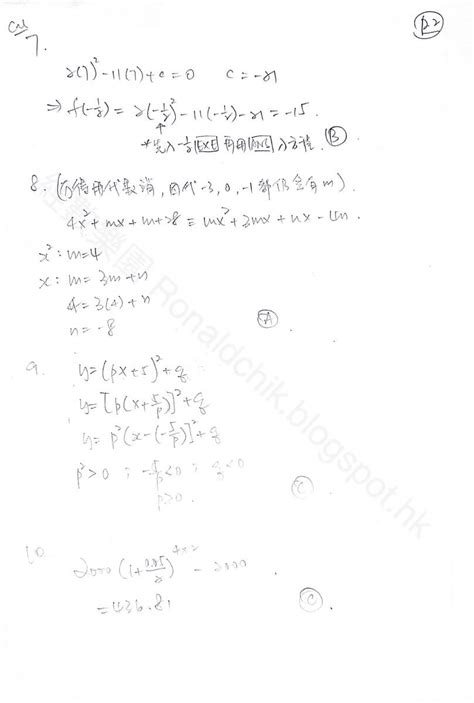 P.2
7.
2(7)²-11(7)+c=0 c=-21
⇒ f(-1/2)=2(-1/2)²-11(-1/2)-21=-15.
*先入-1/2 EXE 再用 ANS 入方程. B
8. (不停用代數消,因代-3,0,-1都仍會有m).
4x²+mx+m+28≡mx²+3mx+nx-4n.
x²:m=4
x:m=3m+n
4=3(4)+n
n=-8 A.
9. y=(px+5)²+q
y=[p(x+5/p)]²+q
y=p²(x-(-5/p))²+q
p²>0;-5/p<0;q<0
p>0. C.
10.
2000(1+0.05/2)^(4×2)-2000
=436.81 C.
紅數樂園 Ronaldchik.blogspot.hk